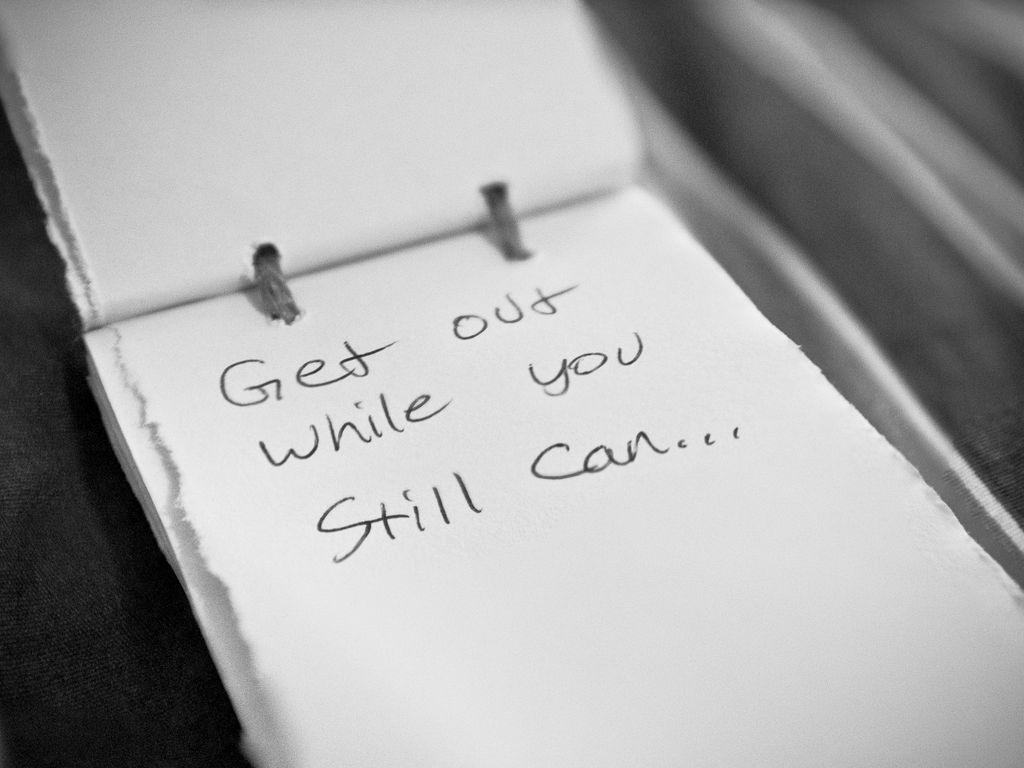 Get out
while you
Still can...